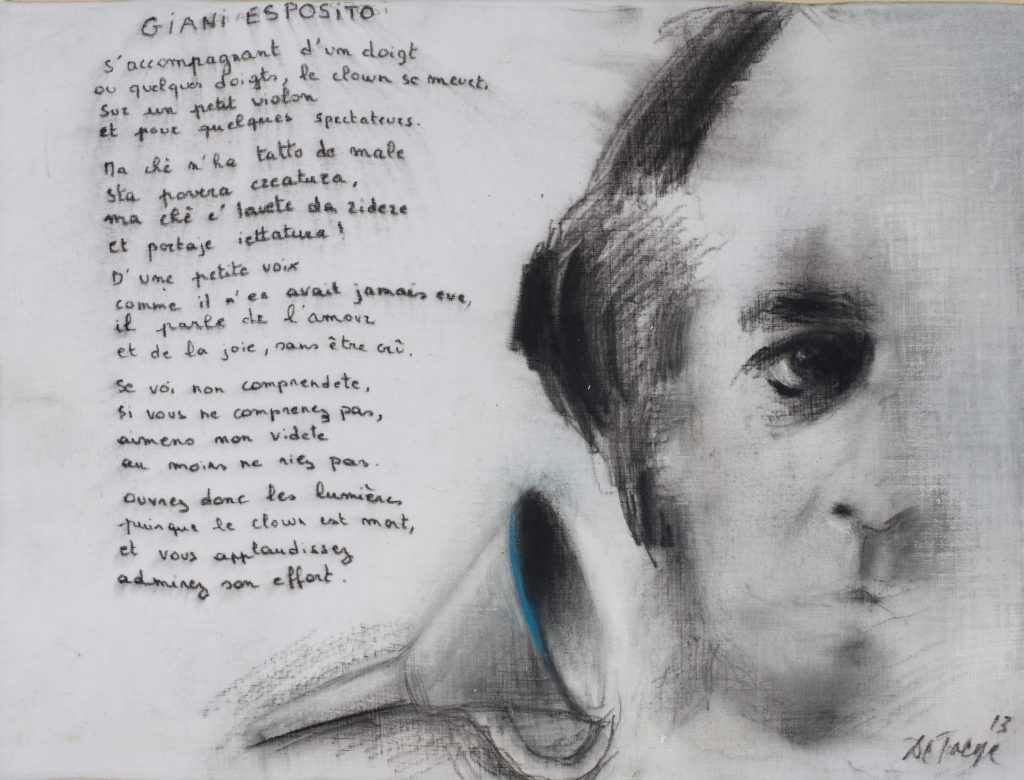 GIANI ESPOSITO
s'accompagnant d'un doigt
ou quelques doigts, le clown se meurt,
sur un petit violon
et pour quelques spectateurs.
Ma chè n'ha tatto de male
sta povera creatura,
ma chè c' lavete da ridere
et portaje iettatura !
D'une petite voix
comme il n'en avait jamais eue,
il parle de l'amour
et de la joie, sans être crû.
Se voi non comprendete,
si vous ne comprenez pas,
aimeno non videte
au moins ne riez pas.
ouvrez donc les lumières
puisque le clown est mort,
et vous applaudissez
admirez son effort.
13